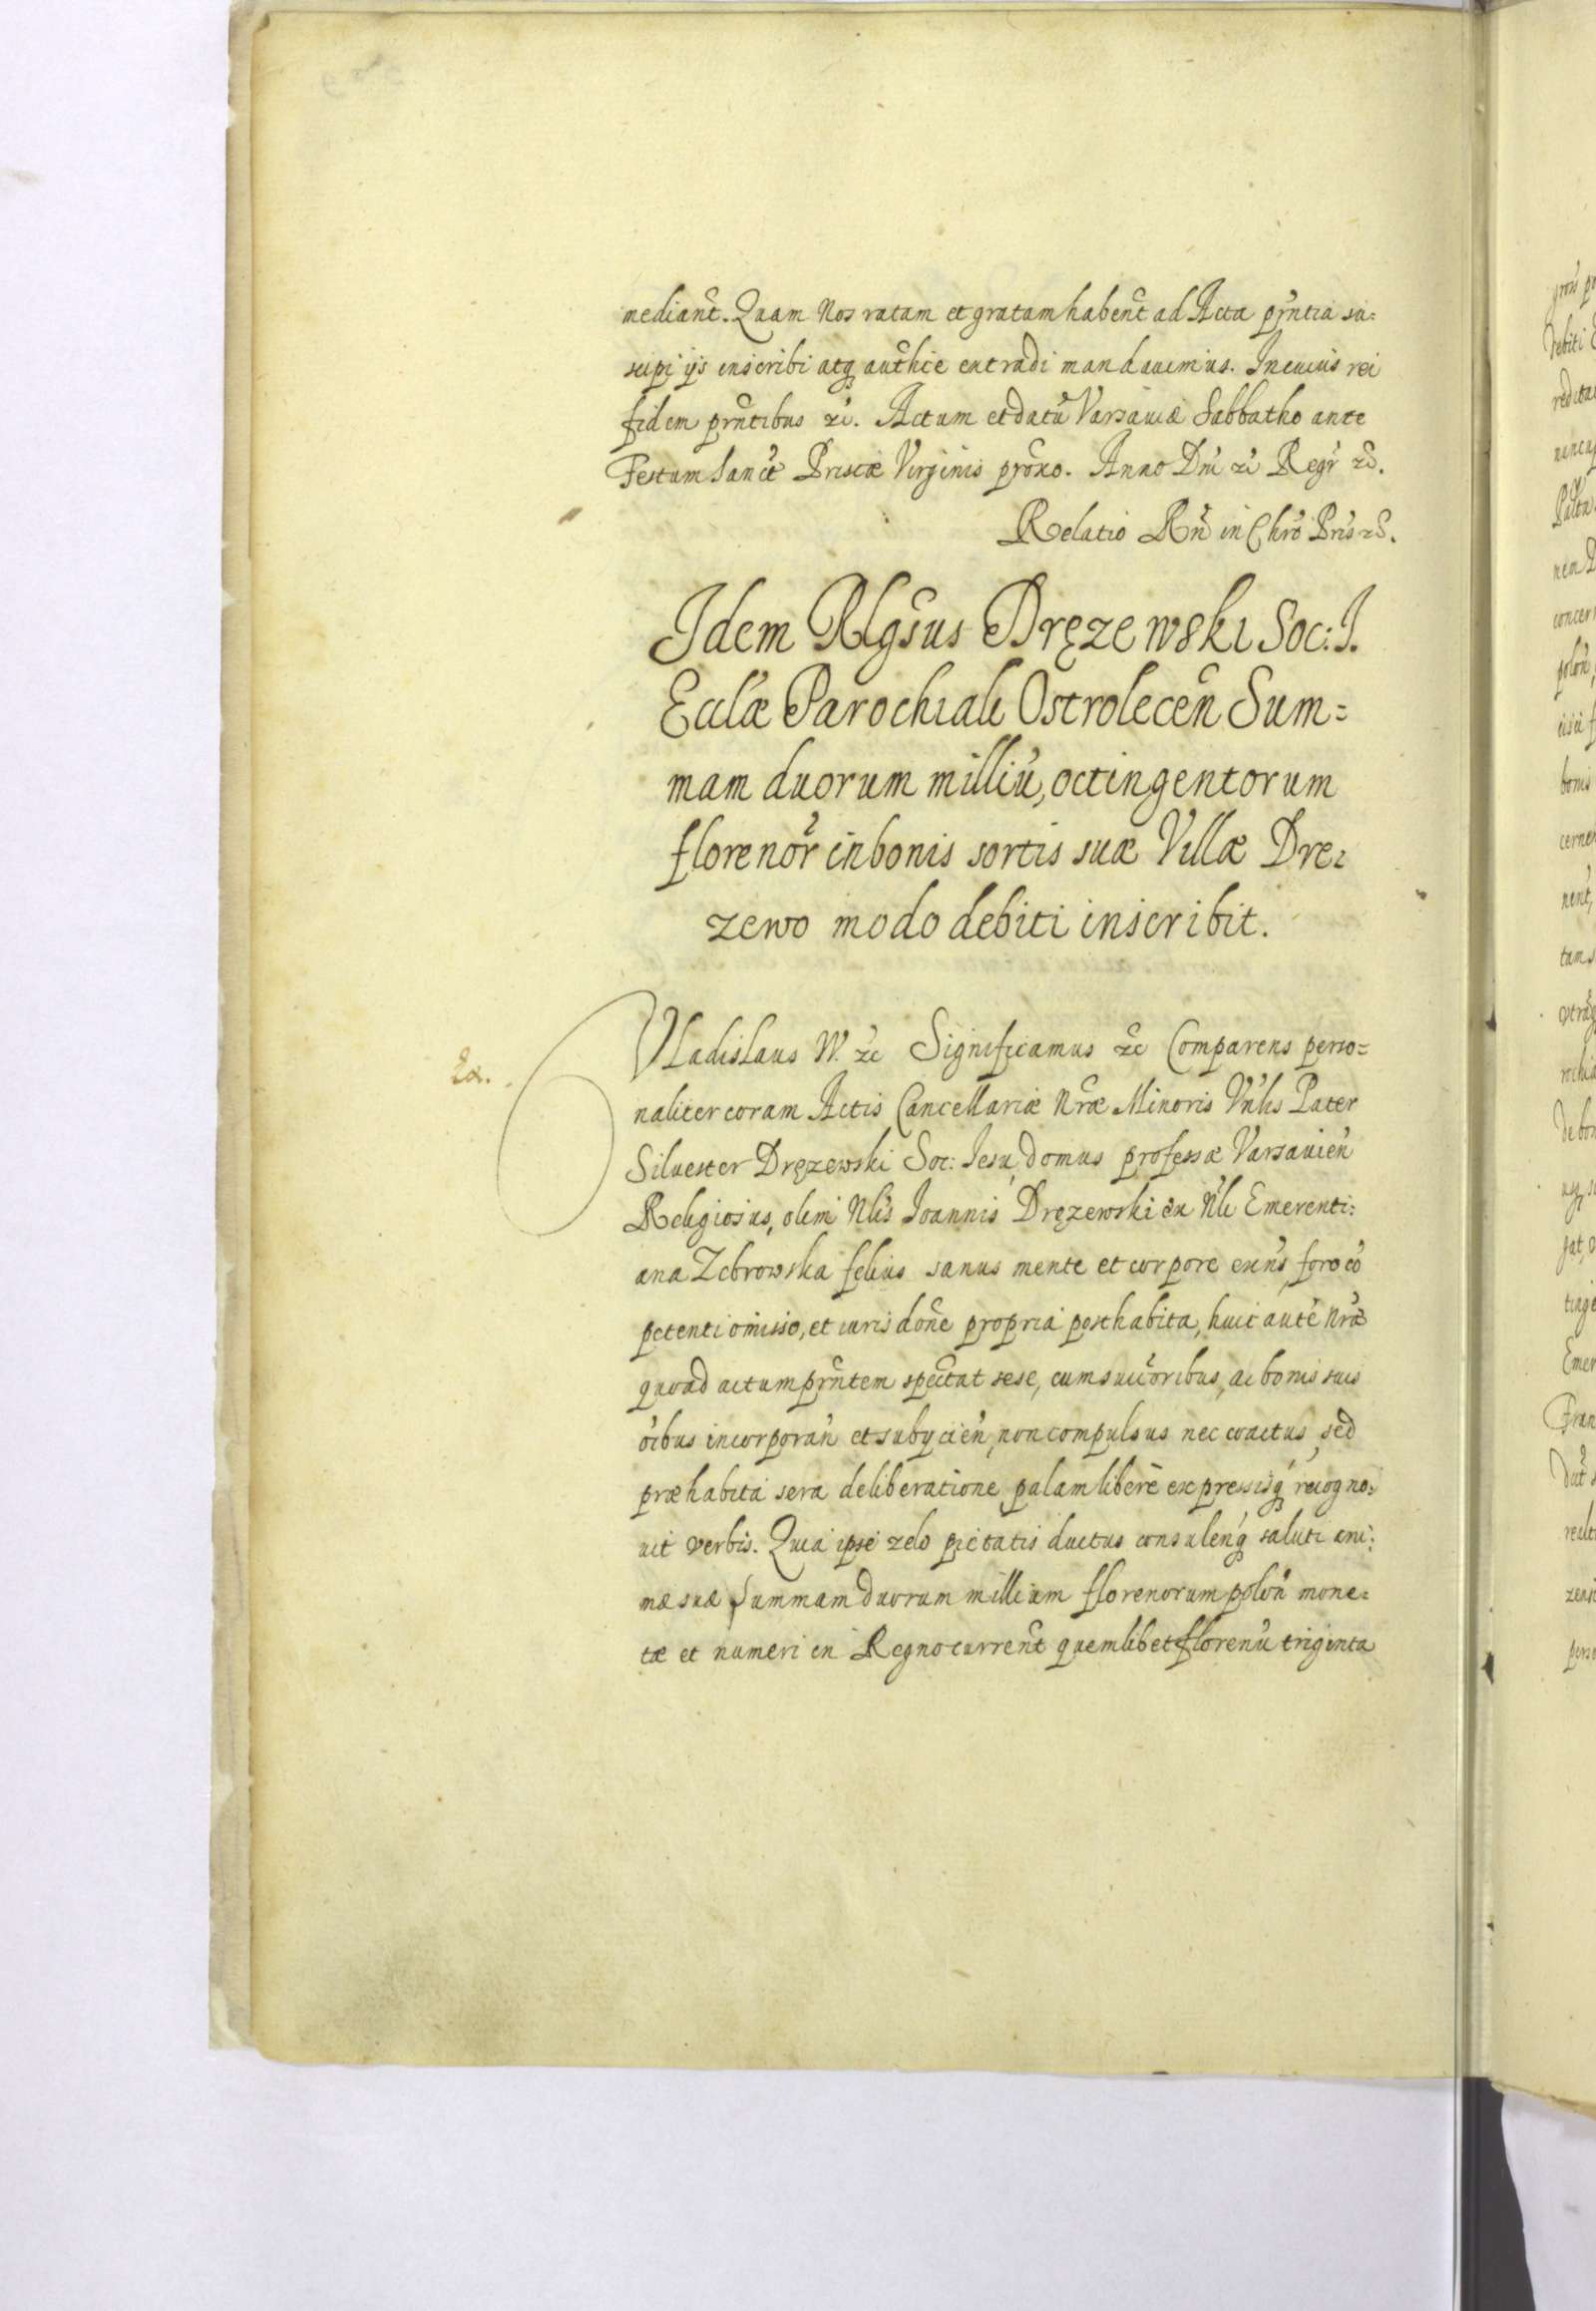 mediant̃. Quam Nos ratam et gratam habent̃ ad Acta prñtia su=
scipi ijs inscribi atq̃ authc̃e extradi mandauimus. In cuius rei
fidem prñtibus zc̃. Actum et datũ Varsauiæ Sabbatho ante
Festum Sanctæ Priscæ Virginis prõxo. Anno Dni zc̃ Regr̃ zc̃.
Relatio Rñ in Chrõ Pris zc̃.
Idem Rlgs̃us Dręzewski Soc: J.
Ecclæ Parochiali Ostrolecen̄ Sum=
mam duorum milliũ, octingentorum
florenor̃ in bonis sortis suæ Villæ Dre=
zewo modo debiti inscribit.
Ex.
Vladislaus W. zc̃ Significamus zc̃ Comparens perso=
naliter coram Actis Cancellariæ Nr̃æ Minoris Vnl̃is Pater
Siluester Dręzewski Soc: Iesu, domus professæ Varsauien̄
Religiosus, olim Nl̃is Ioannis Dręzewski ex Nl̃i Emerenti=
ana Zebrowska filius sanus mente et corpore exñs, foro cõ
petenti omisso, et iuris dõne propria posthabita, huic autẽ Nr̃æ
quoad actum prñtem spectat sese, cum succõribus, ac bonis suis
oĩbus incorporan̄ et subijcien̄, non compulsus nec coactus, sed
præhabita sera deliberatione, palam liberè expressisq̃ recogno=
uit verbis. Quia ipse zelo pietatis ductus consulenq̃ saluti ani=
mæ suæ Summam duorum millium florenorum polon̄ mone=
tæ et numeri in Regno current̃ quemlibet florenũ triginta